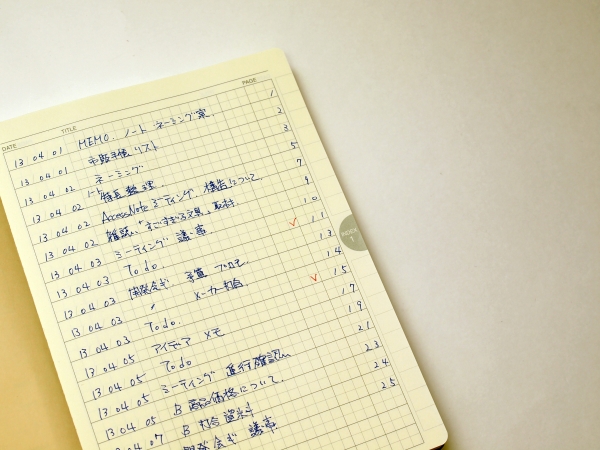 DATE TITLE PAGE
13 04 01 MEMO. ノート ネーミング案. 1
13 04 01 市販手帳リスト 2
13 04 02 ネーミング 3
13 04 02 ノート 特長整理. 5
13 04 02 AccessNote ミーティング について 7
13 04 02 雑誌「すごすぎる文具」取材. 9
13 04 03 ミーティング 議事 10
13 04 03 Todo. ✓ 11
13 04 03 開発会ぎ 予算 プロモ. 13
13 04 03 〃 メーカー打合 14
13 04 03 Todo. ✓ 15
13 04 05 アイディア メモ 17
13 04 05 Todo 19
13 04 05 ミーティング 進行確認 21
13 04 05 B 商品価格について. 23
13 04 07 B 打合 資料 24
会ぎ 議事 25
INDEX
1